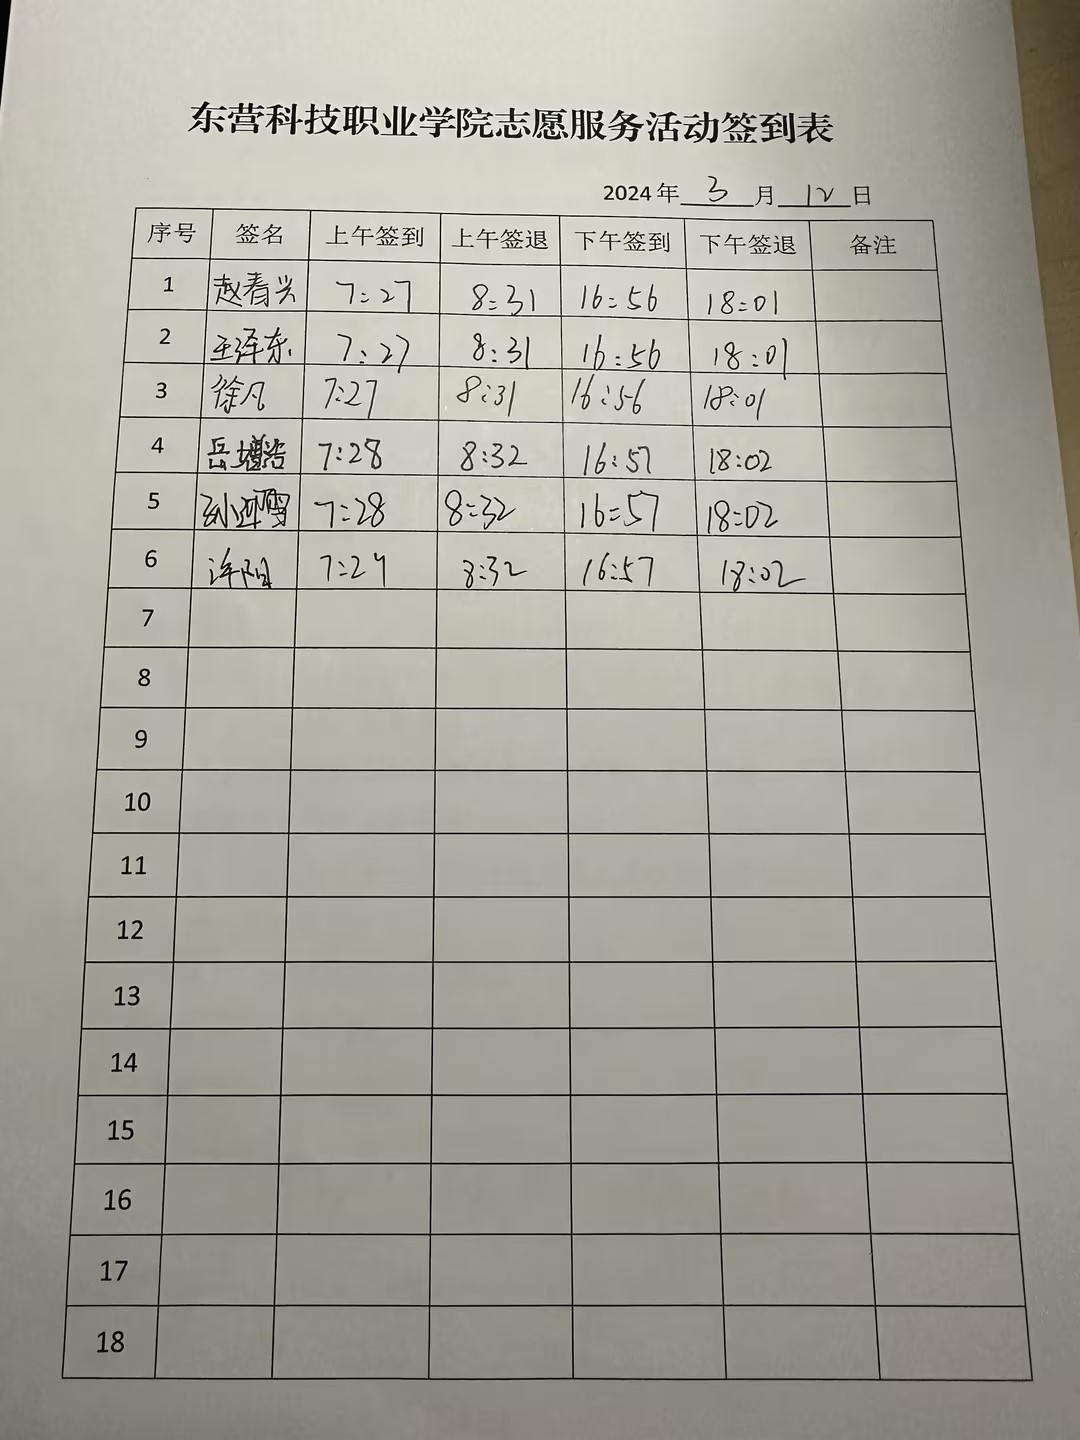 东营科技职业学院志愿服务活动签到表
2024年 3 月 12 日
序号 签名 上午签到 上午签退 下午签到 下午签退 备注
1 赵春兴 7:27 8:31 16:56 18:01
2 王泽东 7:27 8:31 16:56 18:01
3 徐凡 7:27 8:31 16:56 18:01
4 岳增浩 7:28 8:32 16:57 18:02
5 7:28 8:32 16:57 18:02
6 许阳 8:32 16:57 18:02
7
8
9
10
11
12
13
14
15
16
17
18